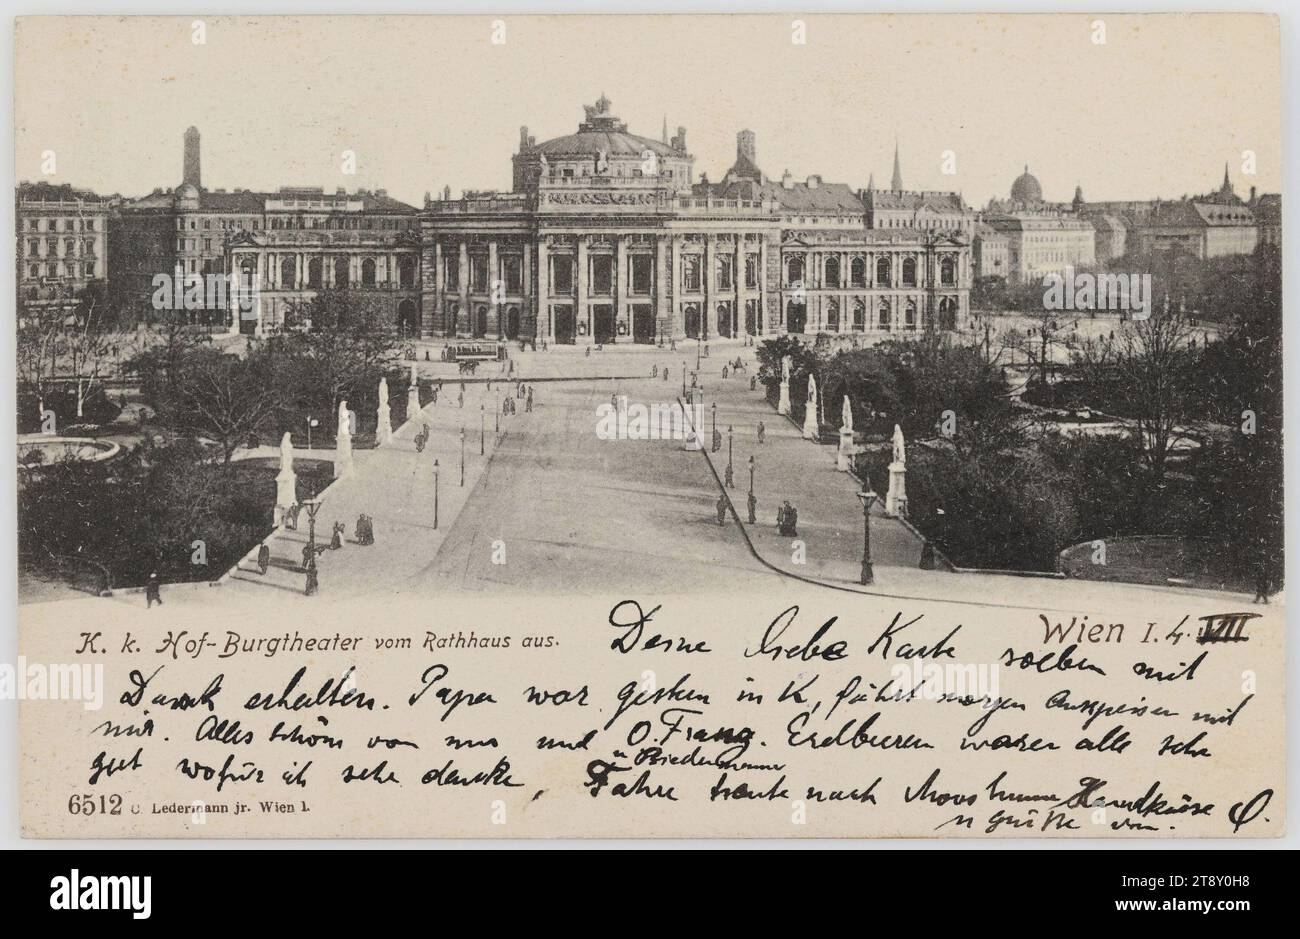 K. k. Hof-Burgtheater vom Rathhaus aus.
Wien I. 4. VII
Deine liebe Karte soeben mit
Dank erhalten. Papa war gestern in K, fährt morgen mit
mir. Alles schön von uns und O. Franz. Erdbeeren waren alle sehr
gut wofür ich sehr danke, Fahre heute nach Handküsse
u Grüße von
6512 C. Ledermann jr. Wien 1.
alamy
Image ID: 2T8Y0H8
www.alamy.com